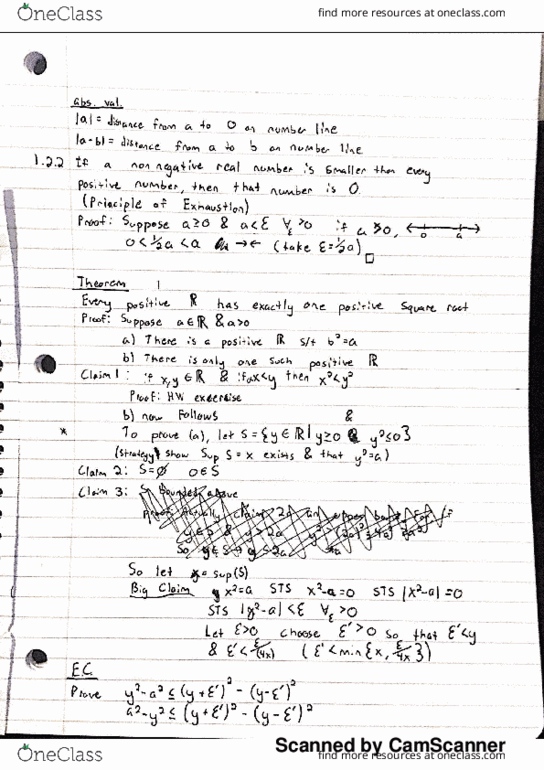 OneClass
find more resources at oneclass.com
Abs. val.
|a| = distance from a to 0 on number line
|a-b| = distance from a to b on number line
1.2.2 If a non negative real number is smaller then every
positive number, then that number is 0.
(Principle of Exhaustion)
Proof: Suppose a≥0 & a<ε ∀ε>0 if a>0,
0 a
0<½a<a →← (take ε=½a) □
Theorem 1
Every positive ℝ has exactly one positive square root
Proof: Suppose a∈ℝ & a>0
a) There is a positive ℝ s/t b²=a
b) There is only one such positive ℝ
Claim 1: if x,y∈ℝ & if 0≤x<y then x²<y²
Proof: HW excercise
b) now follows
&
* To prove (a), let S={y∈ℝ| y≥0 y²≤0}
(strategy show Sup S=x exists & that y²=a)
Claim 2: S=∅ 0∈S
Claim 3: S Bounded above
So let = sup(S)
Big Claim x²=a STS x²-a=0 STS |x²-a|=0
STS |y²-a|<ε ∀ε>0
Let ε>0 choose ε'>0 so that ε'<y
& ε'<ε/(4x) (ε'<min{x, ε/4x})
E.C.
Prove y²-a²≤(y+ε')²-(y-ε')²
a²-y²≤(y+ε')²-(y-ε')²
Scanned by CamScanner
OneClass
find more resources at oneclass.com